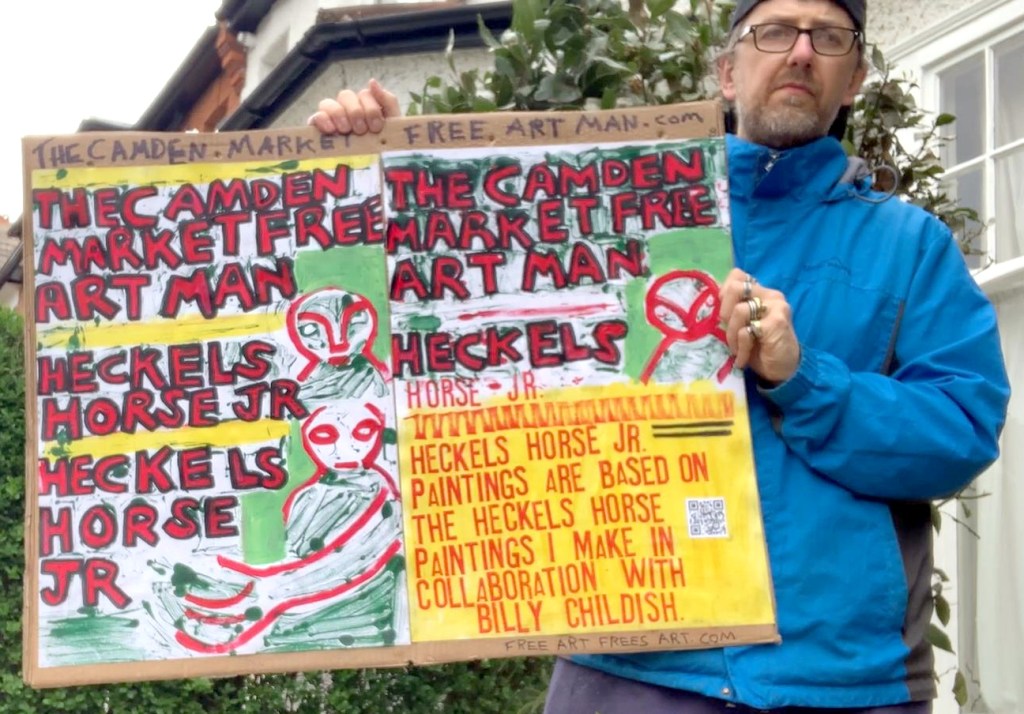 THE.CAMDEN.MARKET FREE.ART MAN.com
THE CAMDEN
MARKET FREE
ART MAN
HECKELS
HORSE JR
HECKELS
HORSE
JR
THE CAMDEN
MARKET FREE
ART MAN
HECKELS
HORSE - JR.
HECKELS HORSE JR.
PAINTINGS ARE BASED ON
THE HECKELS HORSE
PAINTINGS I MAKE IN
COLLABORATION WITH
BILLY CHILDISH.
FREE ART FREES ART.COM